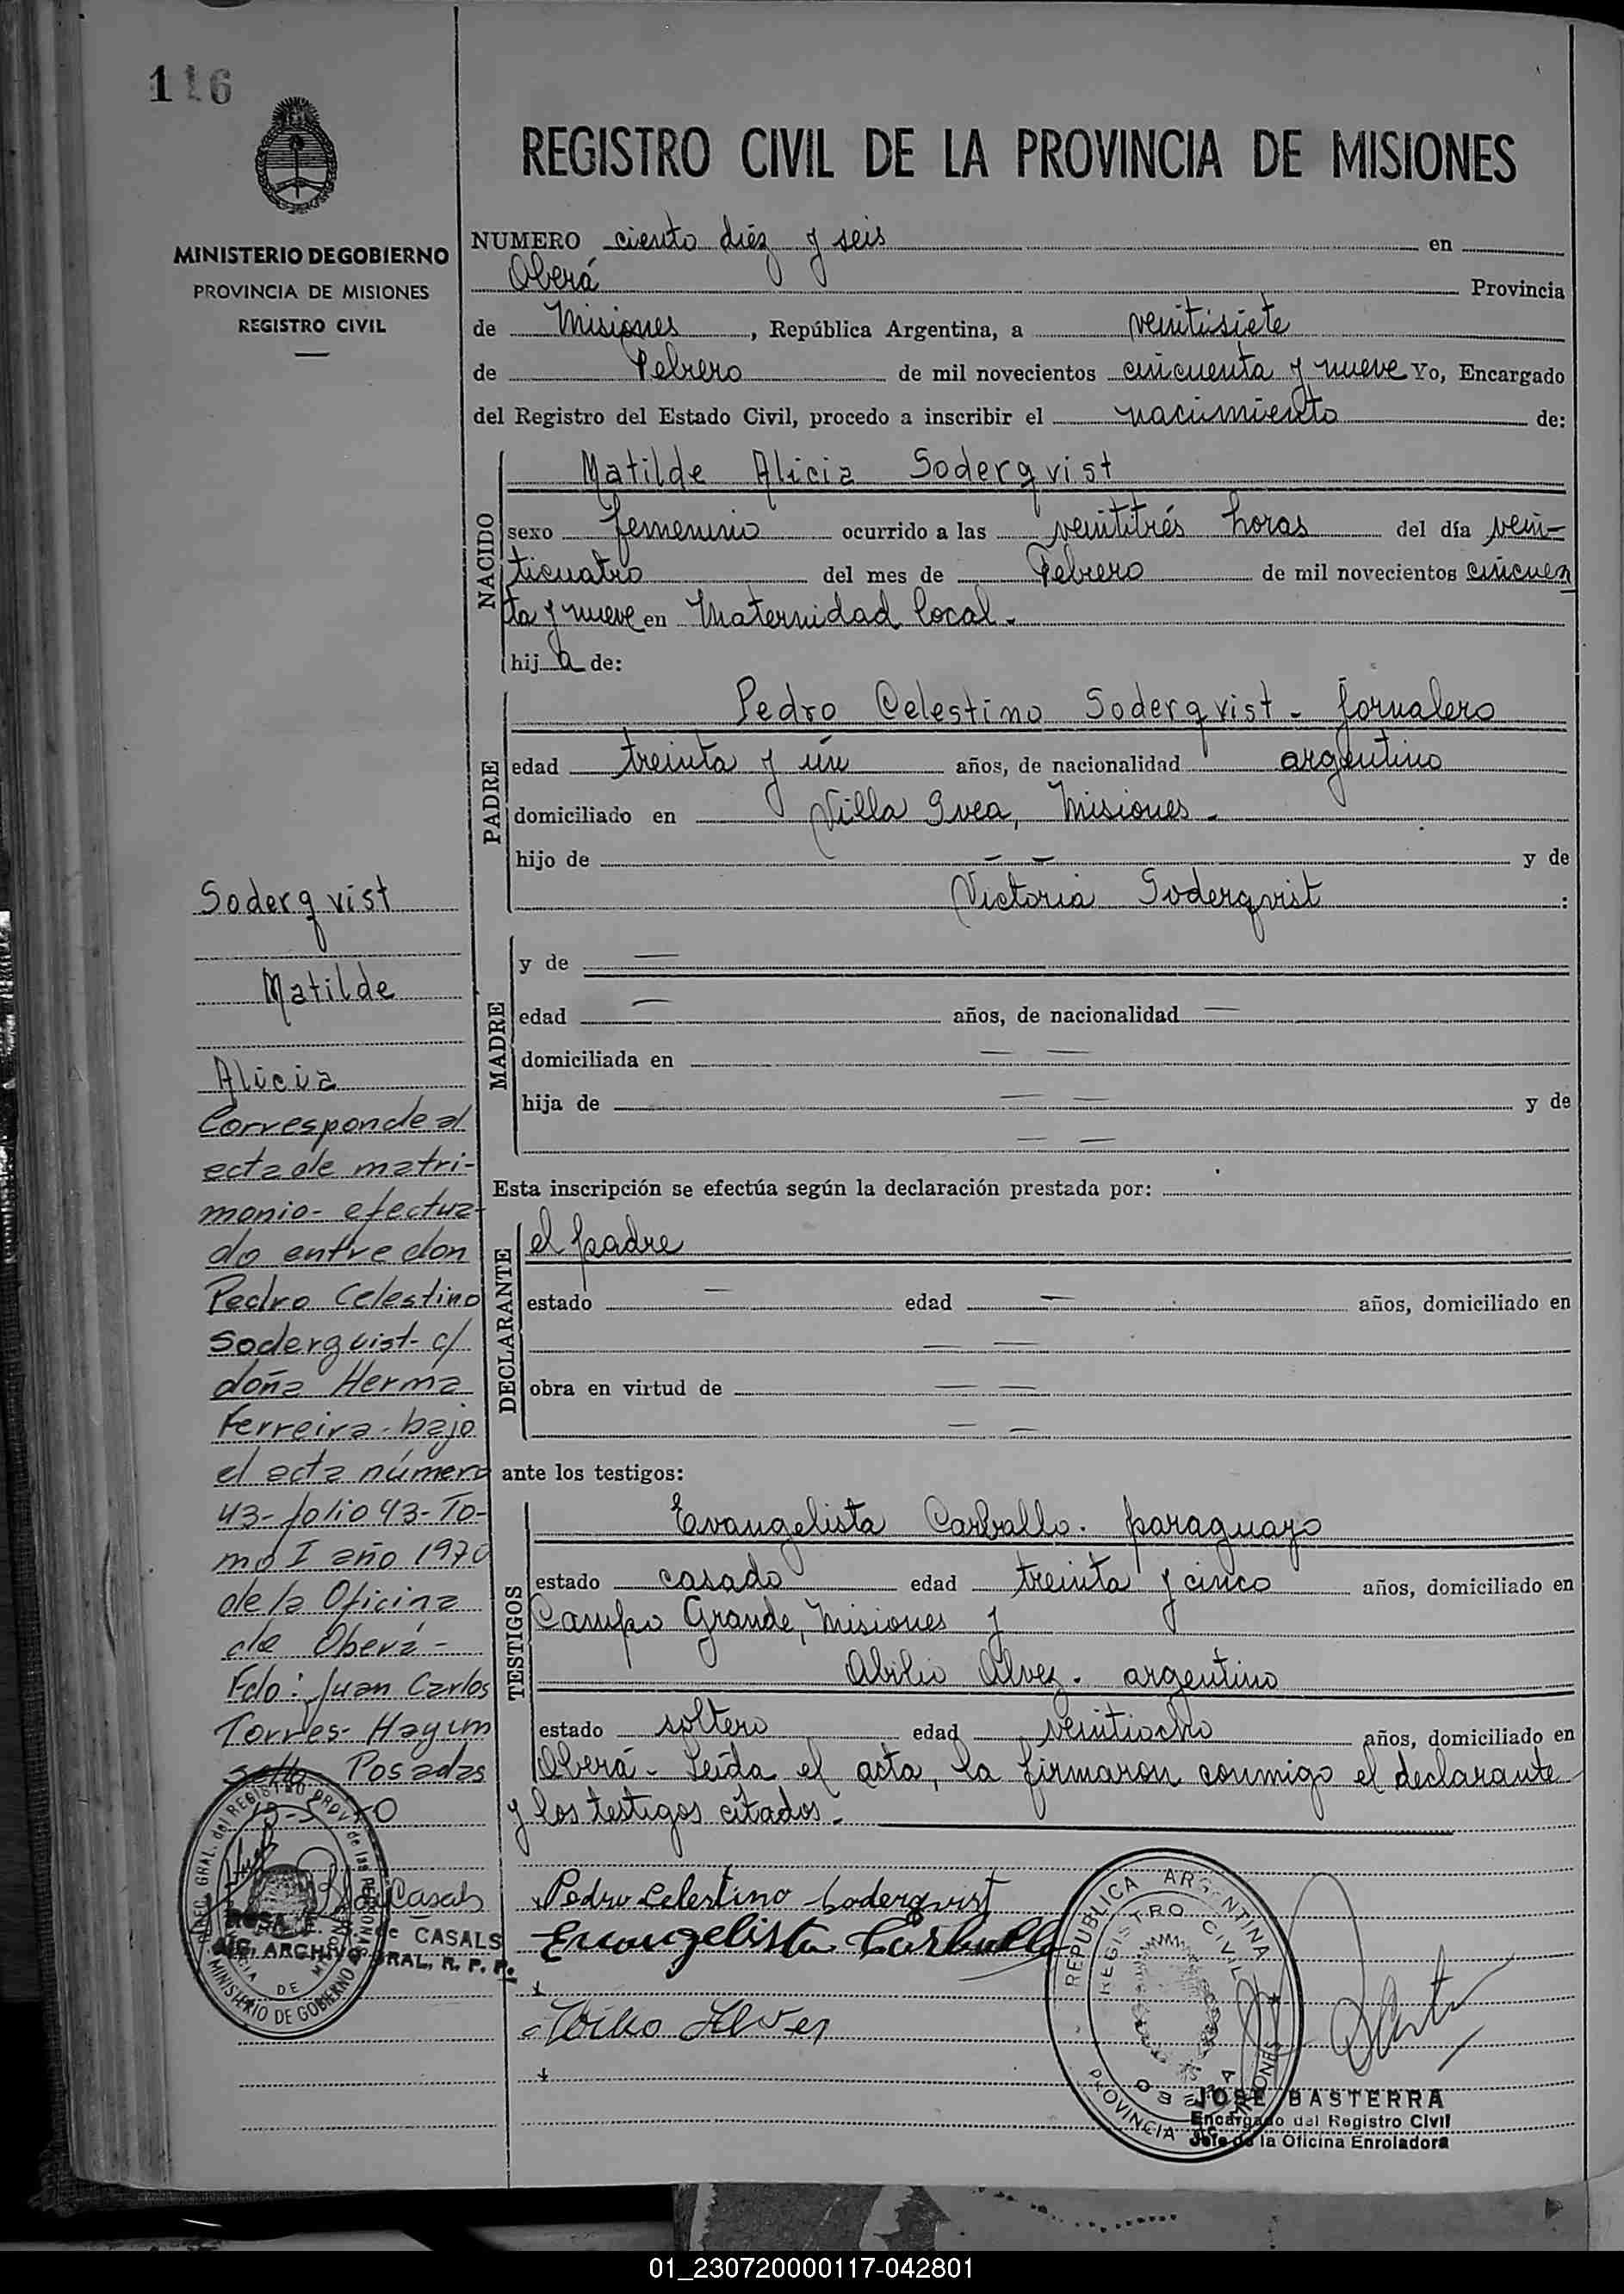 116
MINISTERIO DE GOBIERNO
PROVINCIA DE MISIONES
REGISTRO CIVIL
REGISTRO CIVIL DE LA PROVINCIA DE MISIONES
NUMERO ciento diéz y seis en
Oberá Provincia
de Misiones, República Argentina, a veintisiete
de Febrero de mil novecientos cincuenta y nueve Yo, Encargado
del Registro del Estado Civil, procedo a inscribir el nacimiento de:
NACIDO
Matilde Alicia Soderqvist
sexo femenino ocurrido a las veintitrés horas del día vein-
ticuatro del mes de Febrero de mil novecientos cincuen
ta y nueve en Maternidad local.
hija de:
PADRE
Pedro Celestino Soderqvist - Jornalero
edad treinta y ún años, de nacionalidad argentino
domiciliado en Villa Svea, Misiones.
hijo de — — y de
Victoria Soderqvist :
MADRE
y de —
edad — años, de nacionalidad —
domiciliada en — —
hija de — — y de
— —
Esta inscripción se efectúa según la declaración prestada por:
DECLARANTE
el padre
estado — edad — años, domiciliado en
— —
obra en virtud de — —
— —
ante los testigos:
TESTIGOS
Evangelista Carballo. paraguayo
estado casado edad treinta y cinco años, domiciliado en
Campo Grande, Misiones y
Abilio Alvez. argentino
estado soltero edad veintiocho años, domiciliado en
Oberá - Leída el acta, la firmaron conmigo el declarante
y los testigos citados.
Pedro Celestino Soderqvist
Evangelista Carballo
Alvez
Soderqvist
Matilde
Alicia
Corresponde al
acta de matri-
monio- efectua-
do entre don
Pedro Celestino
Soderquist- c/
doña Herma
Ferreira- bajo
el acta número
43- folio 43- To-
mo I año 1970
de la Oficina
de Oberá-
Fdo: Juan Carlos
Torres- Hay un
sello Posadas
Casals
DIREC. GRAL. del REGISTRO PROV. de las PERSONAS
MINISTERIO DE GOBIERNO
CASALS
ARCHIVO GRAL. R. P. P.
REPUBLICA ARGENTINA
REGISTRO CIVIL
OBERA
PROVINCIA DE MISIONES
JOSE BASTERRA
Encargado del Registro Civil
Jefe de la Oficina Enroladora
01_230720000117-042801